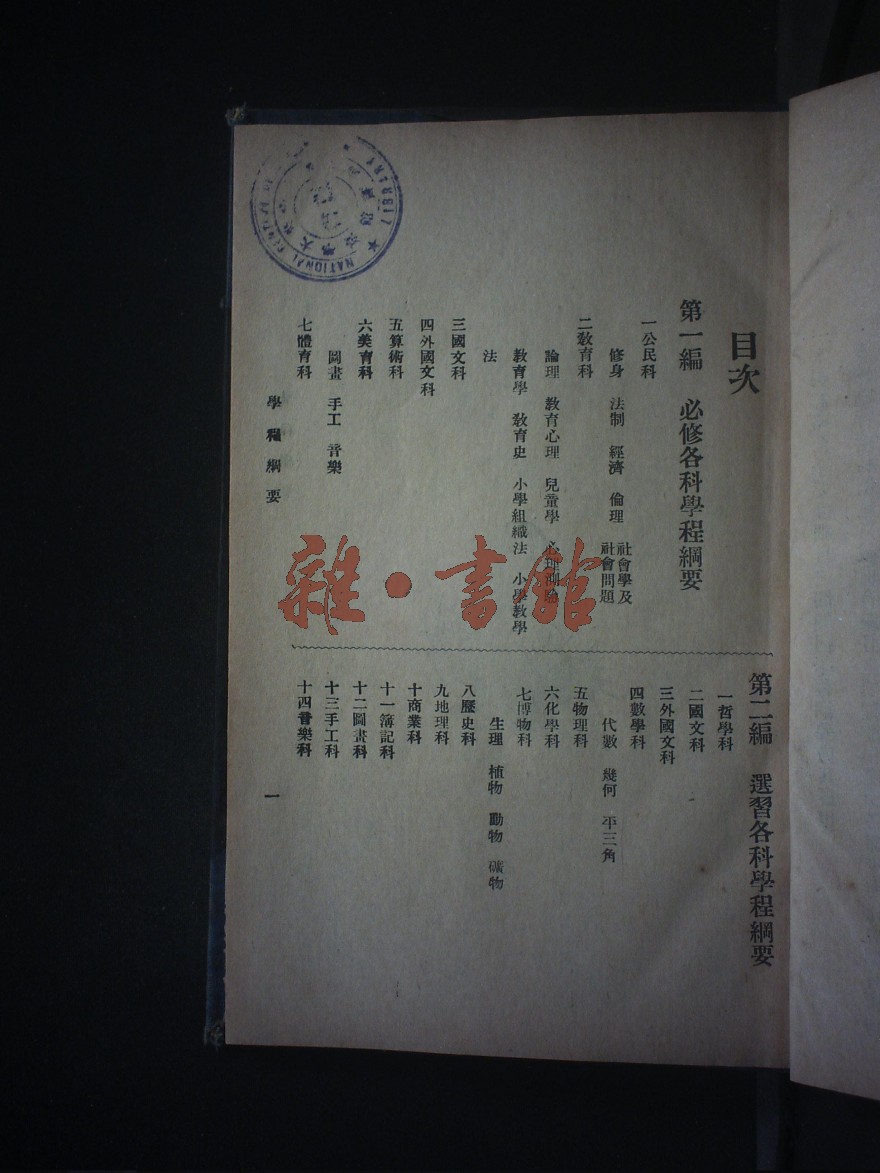 目次
第一編　必修各科學程綱要
一公民科
修身　法制　經濟　倫理　社會學及社會問題
二教育科
論理　教育心理　兒童學　心理測驗
教育學　教育史　小學組織法　小學教學
法
三國文科
四外國文科
五算術科
六美育科
圖畫　手工　音樂
七體育科
第二編　選習各科學程綱要
一哲學科
二國文科
三外國文科
四數學科
代數　幾何　平三角
五物理科
六化學科
七博物科
生理　植物　動物　礦物
八歷史科
九地理科
十商業科
十一簿記科
十二圖畫科
十三手工科
十四音樂科
學程綱要
一
雜·書館
NATIONAL CENTRAL